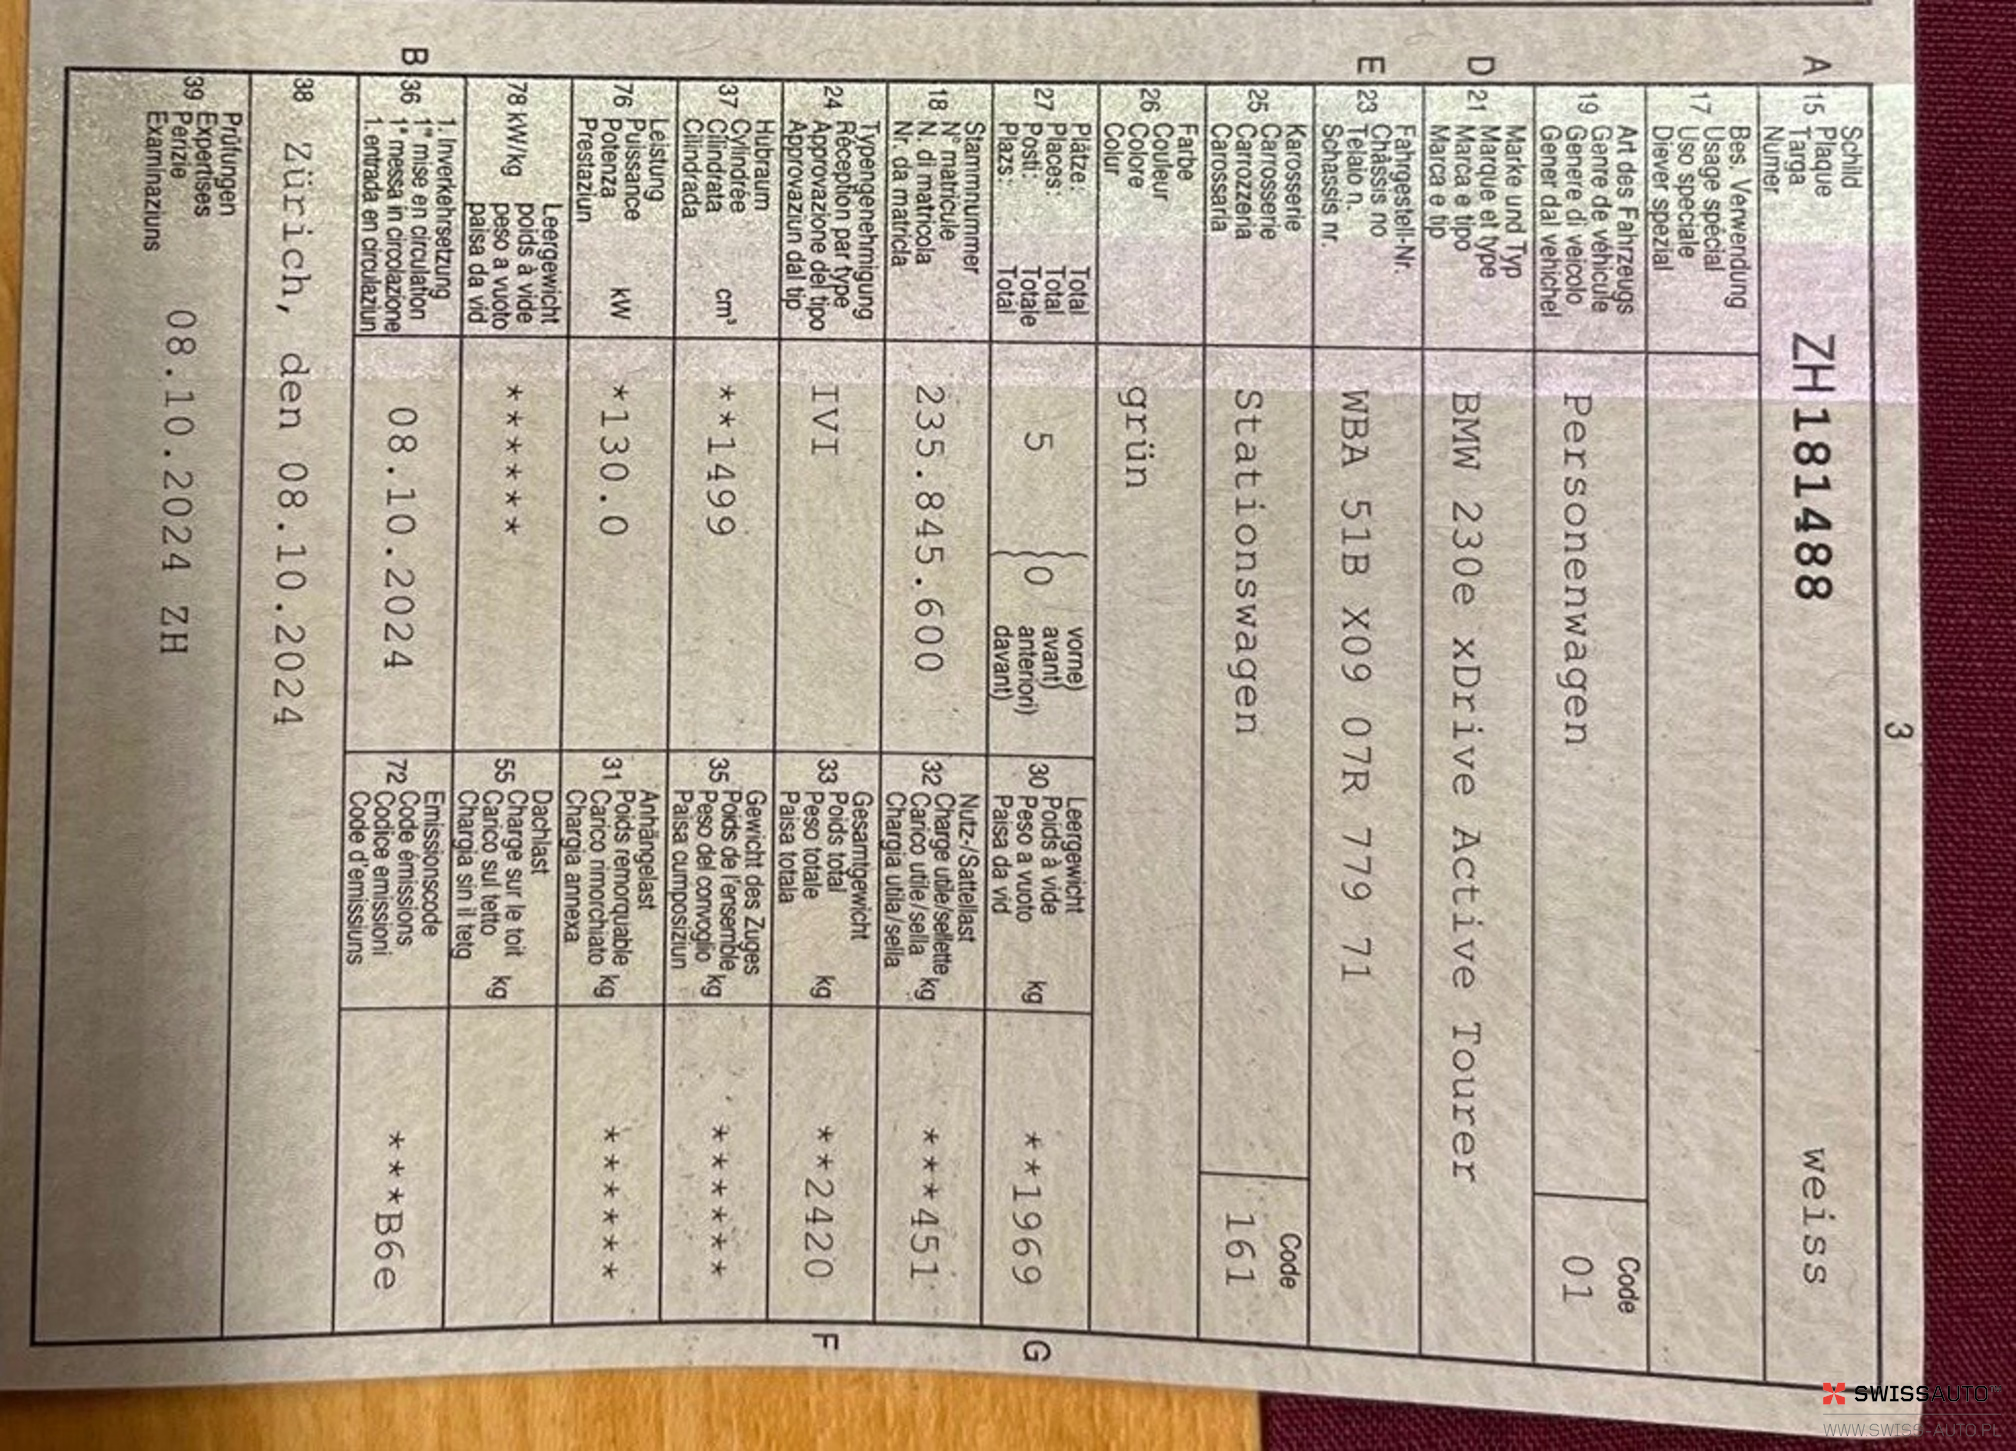 3
A 15 Schild
Plaque
Targa
Numer
ZH181488
weiss
17 Bes. Verwendung
Usage spécial
Uso speciale
Diever spezial
19 Art des Fahrzeugs
Genre de véhicule
Genere di veicolo
Gener dal vehichel
Personenwagen
Code
01
D 21 Marke und Typ
Marque et type
Marca e tipo
Marca e tip
BMW 230e xDrive Active Tourer
E 23 Fahrgestell-Nr.
Châssis no
Telaio n.
Schassis nr.
WBA 51B X09 07R 779 71
25 Karosserie
Carrosserie
Carrozzeria
Carossaria
Stationswagen
Code
161
26 Farbe
Couleur
Colore
Colur
grün
27 Plätze: Total
Places: Total
Posti: Totale
Plazs: Total
5
0
vorne)
avant)
anteriori)
davant)
30 Leergewicht
Poids à vide
Peso a vuoto
Paisa da vid
kg
**1969
G
18 Stammnummer
N° matricule
N. di matricola
Nr. da matricla
235.845.600
32 Nutz-/Sattellast
Charge utile/sellette
Carico utile/sella
Chargia utila/sella
kg
***451
24 Typengenehmigung
Réception par type
Approvazione del tipo
Approvaziun dal tip
IVI
33 Gesamtgewicht
Poids total
Peso totale
Paisa totala
kg
**2420
F
37 Hubraum
Cylindrée
Cilindrata
Cilindrada
cm³
**1499
35 Gewicht des Zuges
Poids de l'ensemble
Peso del convoglio
Paisa cumposiziun
kg
******
76 Leistung
Puissance
Potenza
Prestaziun
kW
*130.0
31 Anhängelast
Poids remorquable
Carico rimorchiato
Chargia annexa
kg
******
78 kW/kg
Leergewicht
poids à vide
peso a vuoto
paisa da vid
******
55 Dachlast
Charge sur le toit
Carico sul tetto
Chargia sin il tetg
kg
B 36 1. Inverkehrsetzung
1re mise en circulation
1a messa in circolazione
1. entrada en circulaziun
08.10.2024
72 Emissionscode
Code émissions
Codice emissioni
Code d'emissiuns
***B6e
38 Zürich, den 08.10.2024
39 Prüfungen
Expertises
Perizie
Examinaziuns
08.10.2024 ZH
SWISSAUTO
WWW.SWISS-AUTO.PL